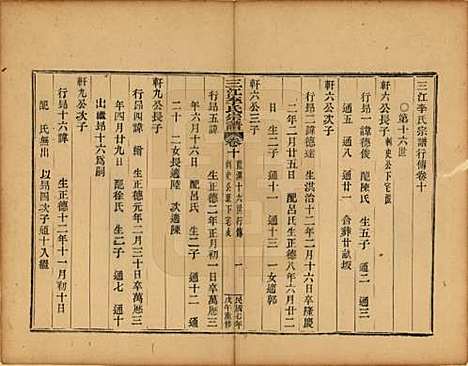 三江李氏宗譜行傳卷十
○第十六世
軒六公長子 刺史公派下宅
行昂一諱德俊 配陳氏 生五子 通一 通三
通五 通八 通廿一 合葬廿畝坂
軒六公三子
行昂二諱德達 生洪治十二年二月十六日卒隆慶
二年二月廿五日 配呂氏生正德八年六月廿二
日 生二子 通二 通十三 一女適郭
軒六公
三江李氏宗譜 卷十
第十六世行傳 一
刺史公派下宅
民國七年
戊午重修
行昂四諱 生正德二年正月初五日卒萬歷三
年六月十六日 配呂氏 生三子 通十二 通
二十 二女長適陸 次適陳
軒九公長子
行昂五諱 生正德元年二月三十日卒萬歷三
年四月廿九日 配徐氏 生二子 通七 通十
出繼昂十六為嗣
軒九公次子
行昂十六諱 生正德十二年十一月初十日
配 氏無出 以昂四次子通十入繼